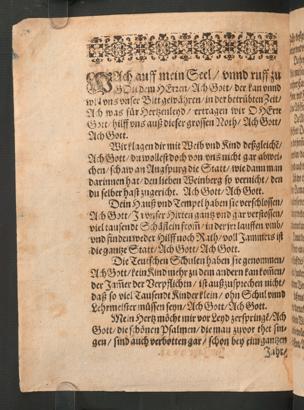 WAch auff mein Seel / vnnd ruff zu
GOtt dem HErren / Ach Gott / der kan vnnd
wil vns vnser Bitt gewähren / in der betrübten Zeit /
Ach was für Hertzenleyd / ertragen wir O HErr
Gott / hilff vns auß dieser grossen Noth / Ach Gott /
Ach Gott.
Wir klagen dir mit Weib vnd Kind deßgleich /
Ach Gott / du wollest doch von vns nicht gar abwei-
chen / schaw an Augspurg die Statt / wie dann man
darinnen hat / den lieben Weinberg so vernicht / den
du selber hast zugericht. Ach Gott / Ach Gott.
Dein Hauß vnd Tempel haben sie verschlossen /
Ach Gott / Ja vnser Hirten gantz vnd gar verstossen /
viel tausendt Schäfflein from̃ / in der irr lauffen vmb /
vnd finden weder Hilff noch Rath / voll Jammers ist
die gantze Statt / Ach Gott / Ach Gott.
Die Teutschen Schulen haben sie genommen /
Ach Gott / kein Kind mehr zu dem andern kan kom̃en /
der Jam̃er der Verpflichtn / ist außzusprechen nicht /
daß so viel Tausendt Kinderklein / ohn Schul vnnd
Lehrmeister müssen seyn / Ach Gott / Ach Gott.
Mein Hertz möcht mir vor Leyd zerspringẽ / Ach
Gott / die schönen Psalmen / die man zuvor thet sin-
gen / sind auch verbotten gar / schon bey ein gantzen
Jahr /